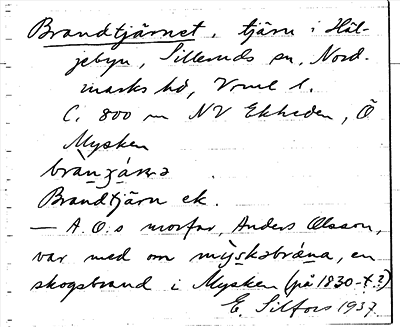 Brandtjärnet, tjärn i Häl-
jebyn, Silleruds sn, Nord-
marks hd, Vrml l.
C. 800 m NV Ekheden, Ö
Mysken
Brandtjärn ek.
— A.O:s morfar, Anders Olsson,
var med om mỳskəbrána, en
skogsbrand i Mysken (på 1830-t?)
E. Silfors 1937